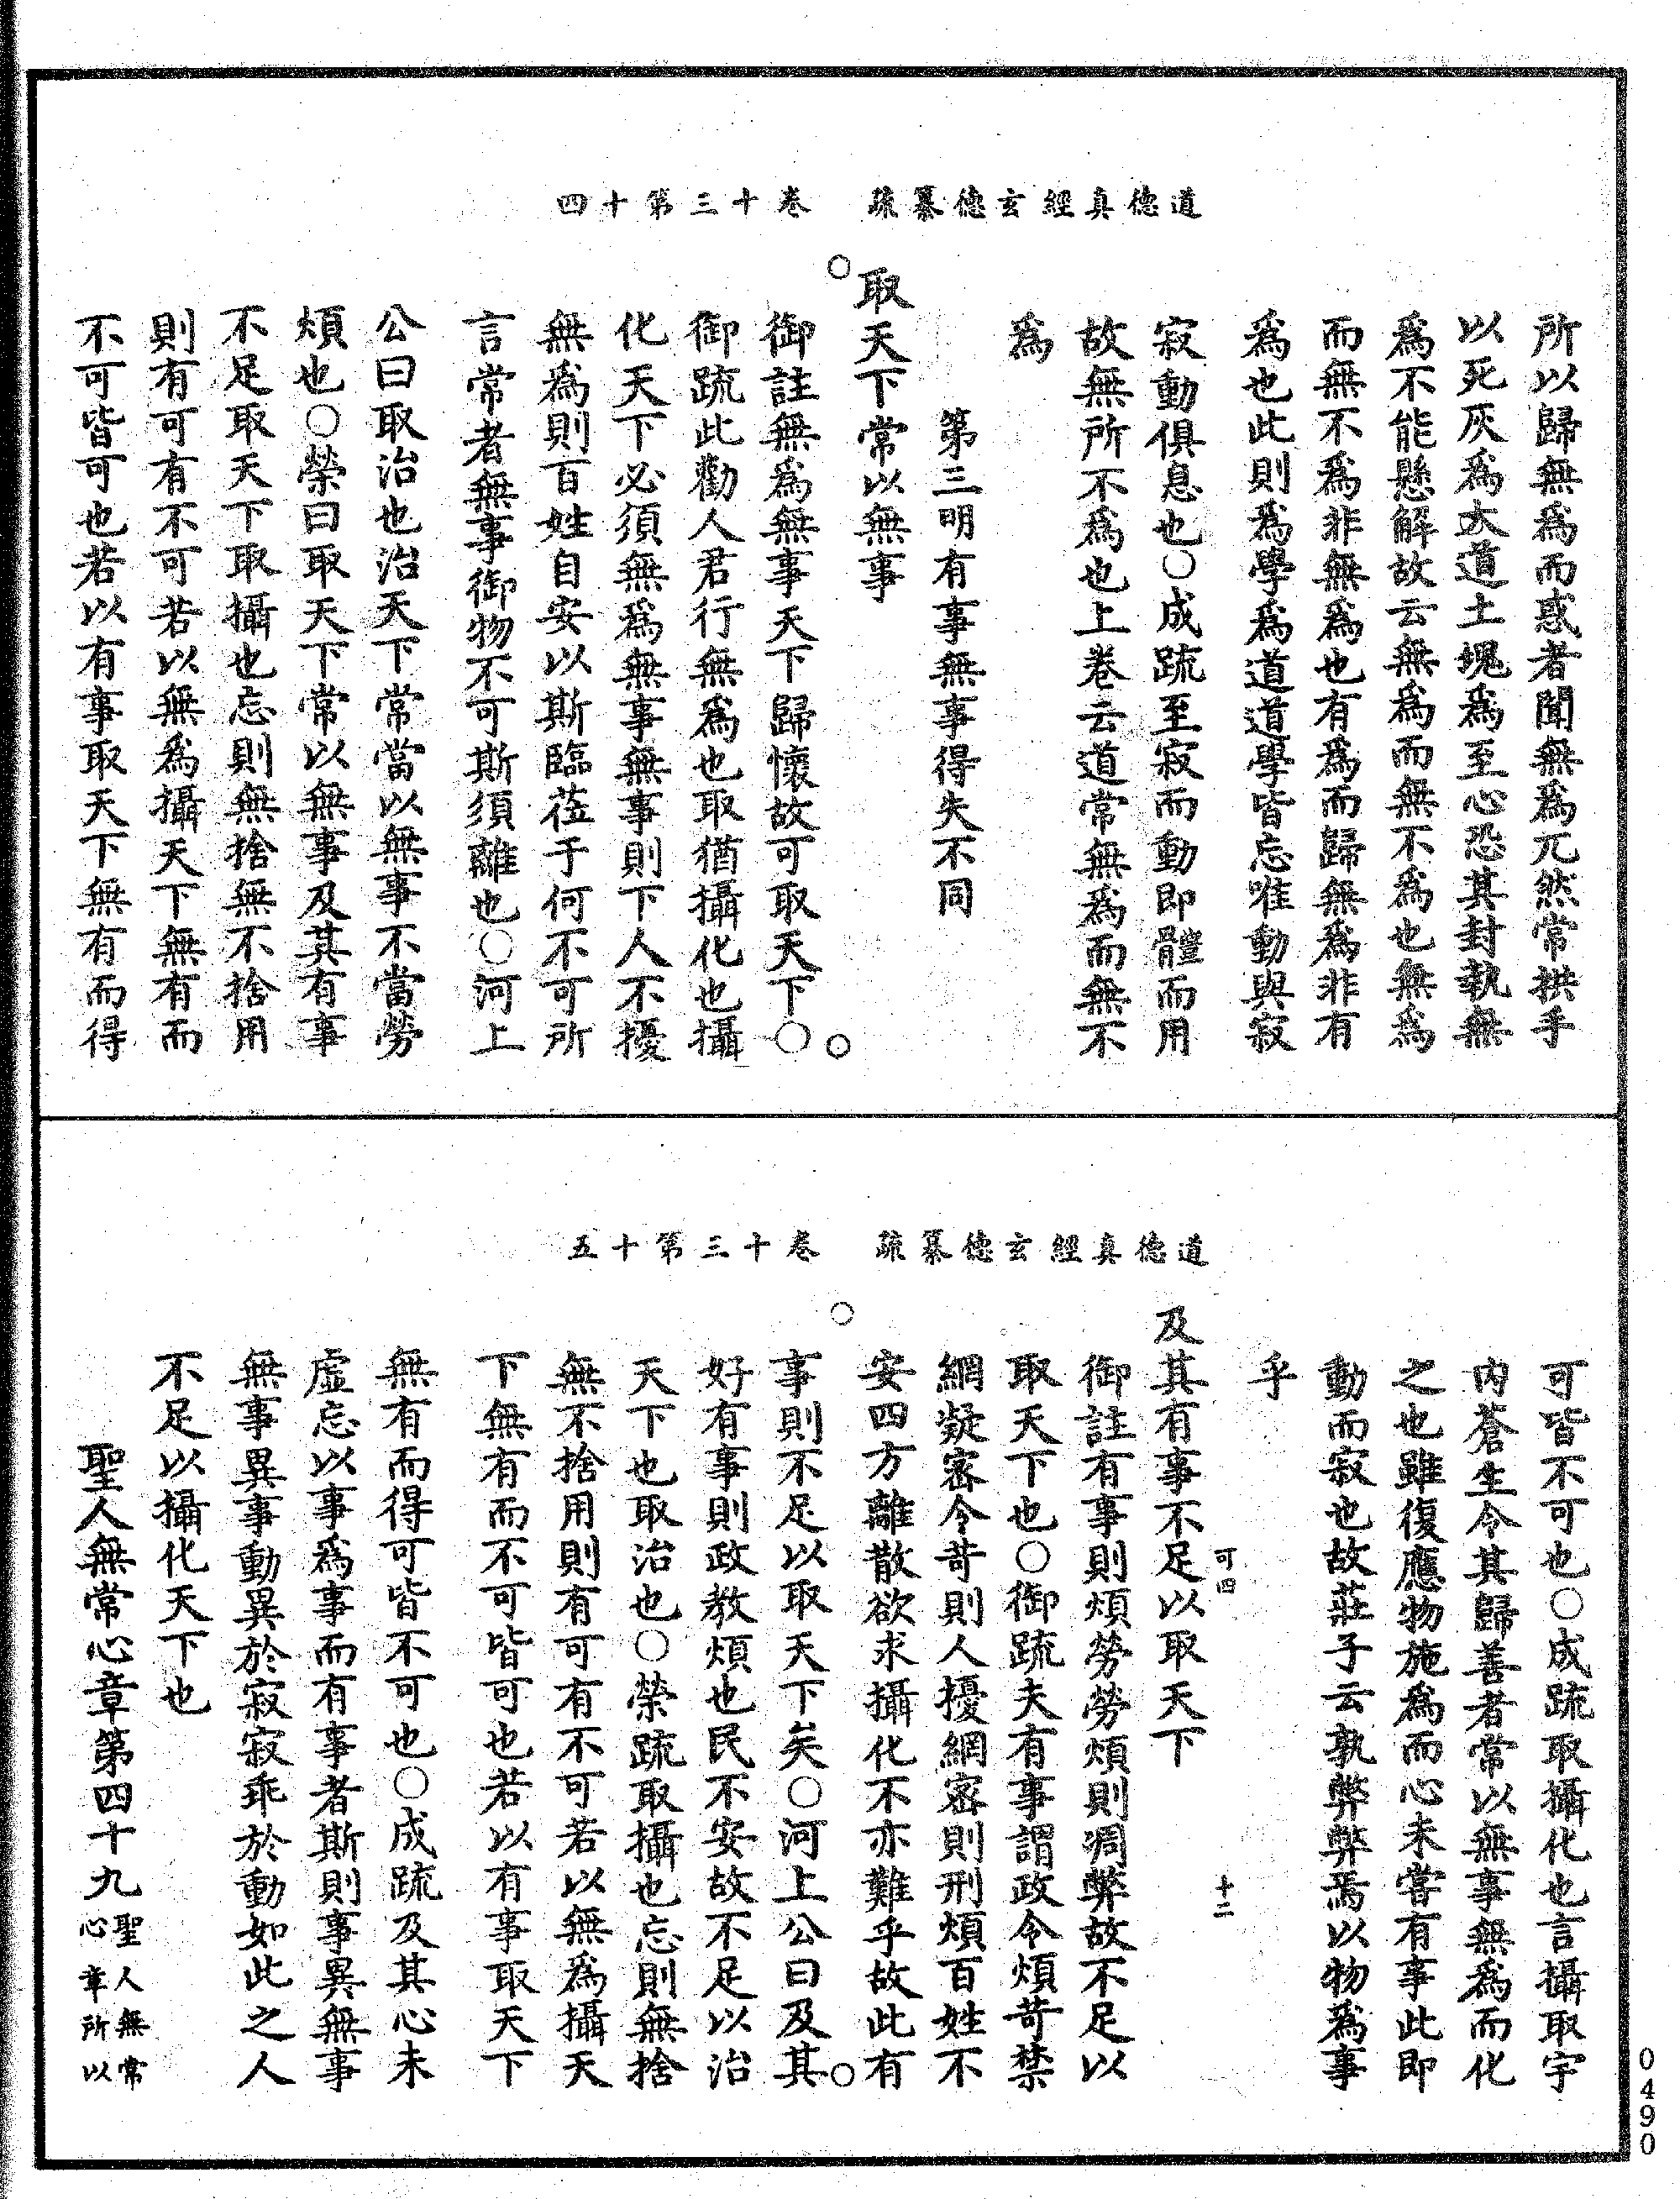 道德真經玄德纂疏　卷十三第十四
所以歸無為而惑者聞無為兀然常拱手
以死灰為大道土塊為至心恐其封執無
為不能懸解故云無為而無不為也無為
而無不為非無為也有為而歸無為非有
為也此則為學為道道學皆忘唯動與寂
寂動俱息也○成疏至寂而動即體而用
故無所不為也上卷云道常無為而無不
為
第三明有事無事得失不同
○取天下常以無事○
御註無為無事天下歸懷故可取天下○
御疏此勸人君行無為也取猶攝化也攝
化天下必須無為無事無事則下人不擾
無為則百姓自安以斯臨莅于何不可所
言常者無事御物不可斯須離也○河上
公曰取治也治天下常當以無事不當勞
煩也○榮曰取天下常以無事及其有事
不足取天下取攝也忘則無捨無不捨用
則有可有不可若以無為攝天下無有而
不可皆可也若以有事取天下無有而得
道德真經玄德纂疏　卷十三第十五
可皆不可也○成疏取攝化也言攝取宇
內蒼生令其歸善者常以無事無為而化
之也雖復應物施為而心未嘗有事此即
動而寂也故莊子云孰弊弊焉以物為事
乎
可四　十二
及其有事不足以取天下
御註有事則煩勞勞煩則凋弊故不足以
取天下也○御疏夫有事謂政令煩苛禁
網凝密令苛則人擾網密則刑煩百姓不
安四方離散欲求攝化不亦難乎故此有
○　○
事則不足以取天下矣○河上公曰及其
好有事則政教煩也民不安故不足以治
天下也取治也○榮疏取攝也忘則無捨
無不捨用則有可有不可若以無為攝天
下無有而不可皆可也若以有事取天下
無有而得可皆不可也○成疏及其心未
虛忘以事為事而有事者斯則事異無事
無事異事動異於寂寂乖於動如此之人
不足以攝化天下也
聖人無常心章第四十九聖人無常心章所以
0490